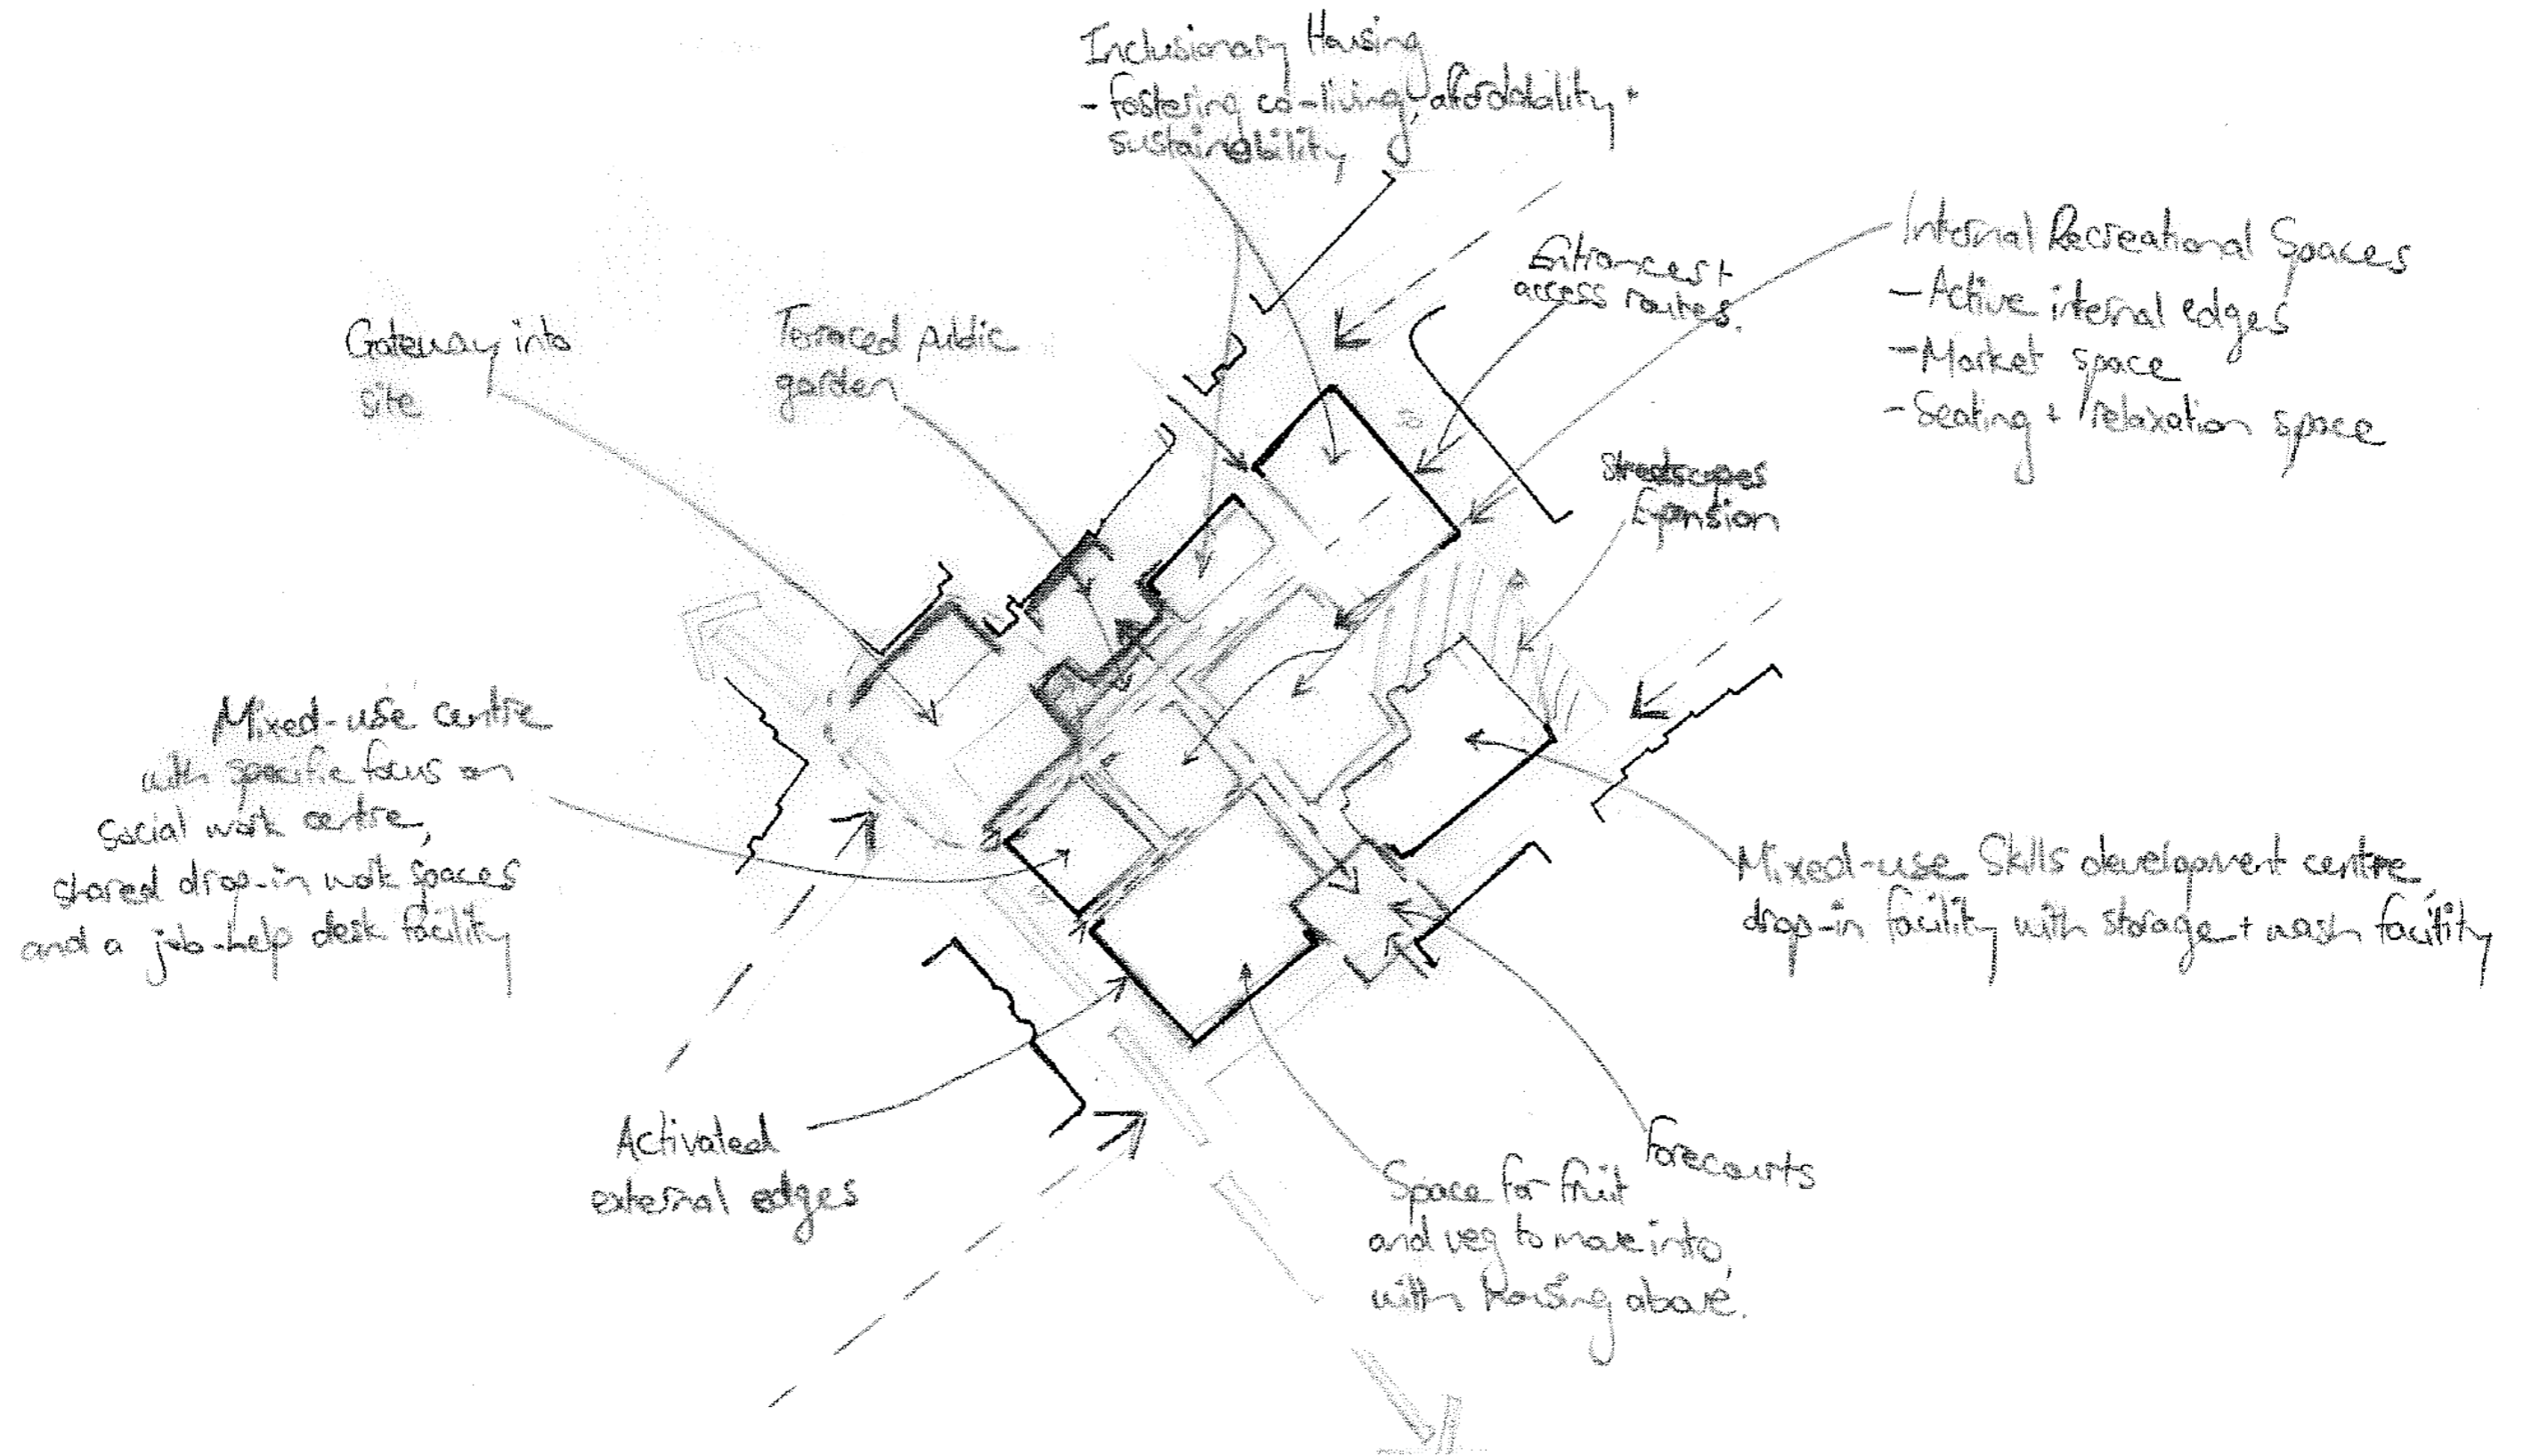 Inclusionary Housing
- fostering co-living, affordability +
sustainability
Entrances +
access routes.
Internal Recreational Spaces
- Active internal edges
- Market space
- Seating + relaxation space
Gateway into
site
Terraced public
garden
Streetscapes
Expansion
Mixed-use centre
with specific focus on
social work centre,
shared drop-in work spaces
and a job-help desk facility
Mixed-use Skills development centre,
drop-in facility with storage + wash facility
Activated
external edges
Forecourts
Space for fruit
and veg to move into,
with housing above.